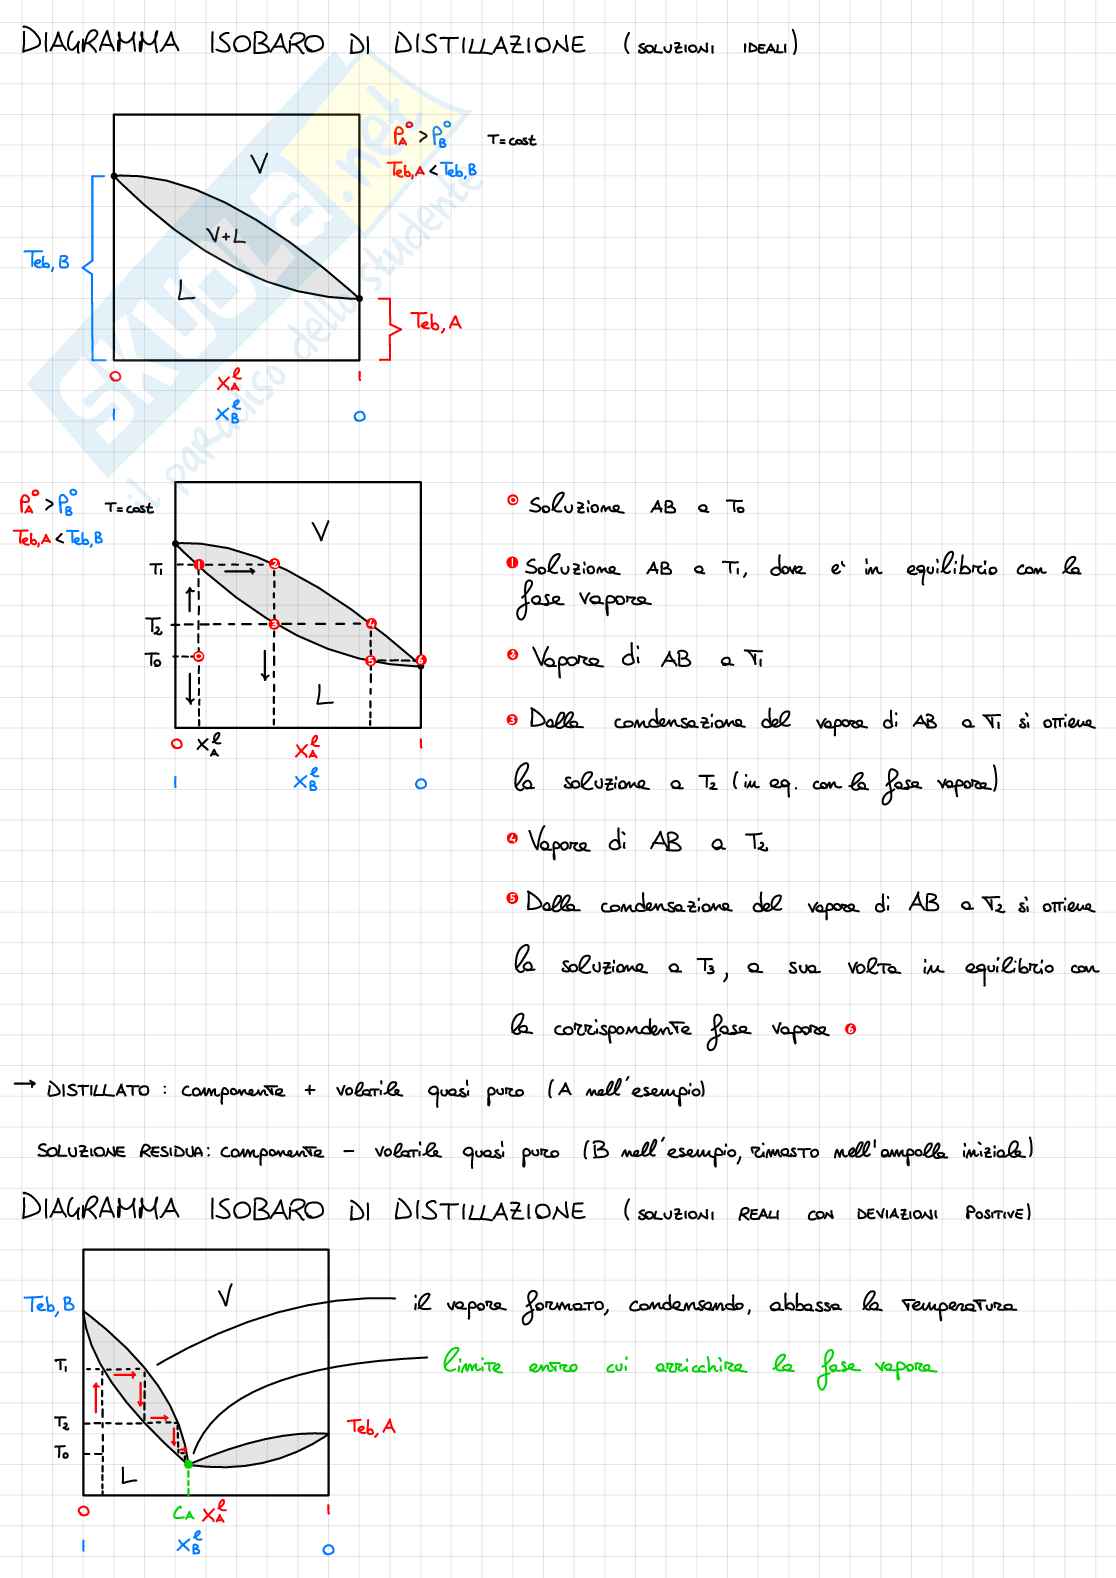 DIAGRAMMA ISOBARO DI DISTILLAZIONE (SOLUZIONI IDEALI)
P°A > P°B T=cost
Teb,A < Teb,B
V
V+L
L
Teb,B
Teb,A
0 XAˡ 1
1 XBˡ 0
SKUOLA.net
il paradiso dello studente
P°A > P°B T=cost
Teb,A < Teb,B
V
T1 1 2
T2 3 4
T0 5 6
L
0 XAˡ XAˡ 1
1 XBˡ 0
Soluzione AB a T0
1 Soluzione AB a T1, dove e' in equilibrio con la
fase vapore
2 Vapore di AB a T1
3 Dalla condensazione del vapore di AB a T1 si ottiene
la soluzione a T2 (in eq. con la fase vapore)
4 Vapore di AB a T2
5 Dalla condensazione del vapore di AB a T2 si ottiene
la soluzione a T3, a sua volta in equilibrio con
la corrispondente fase vapore 6
→ DISTILLATO: componente + volatile quasi puro (A nell'esempio)
SOLUZIONE RESIDUA: componente - volatile quasi puro (B nell'esempio, rimasto nell'ampolla iniziale)
DIAGRAMMA ISOBARO DI DISTILLAZIONE (SOLUZIONI REALI CON DEVIAZIONI POSITIVE)
Teb,B V il vapore formato, condensando, abbassa la temperatura
T1 limite entro cui arricchire la fase vapore
T2 Teb,A
T0
L
0 CA XAˡ 1
1 XBˡ 0